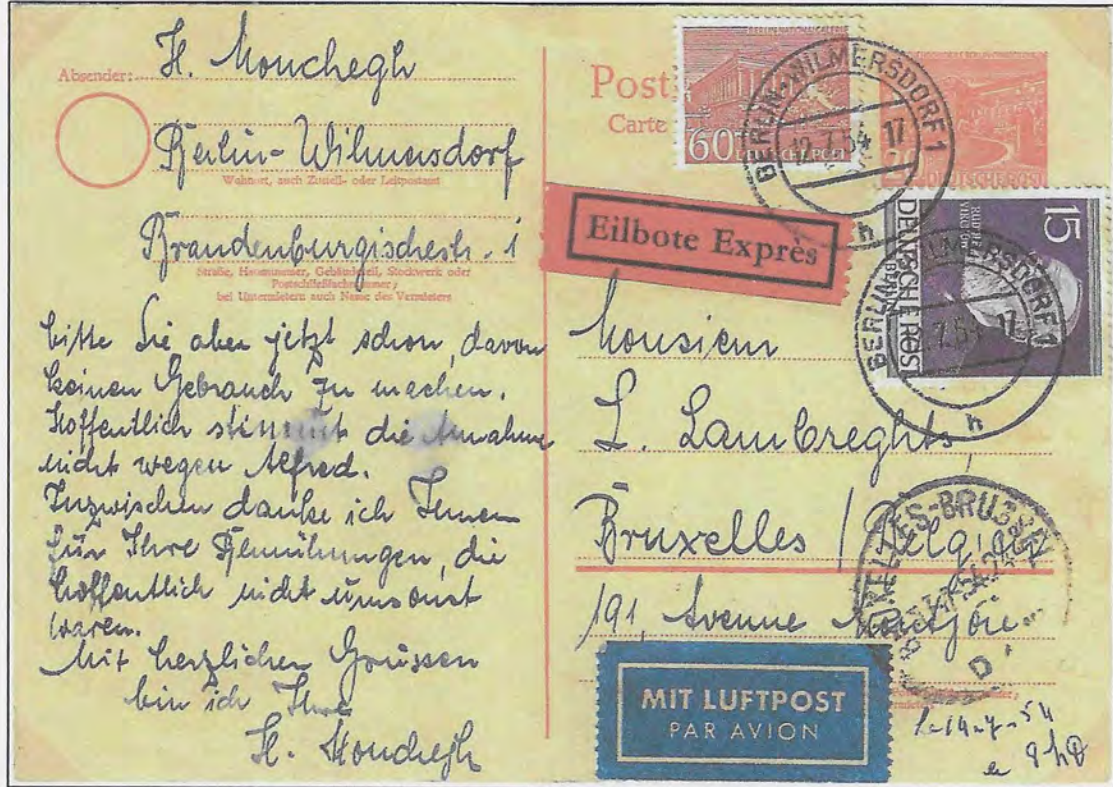 Absender: H. Mouchegh
Berlin-Wilmersdorf
Wohnort, auch Zustell- oder Leitpostamt
Brandenburgischestr. 1
Straße, Hausnummer, Gebäudeteil, Stockwerk oder
Postschließfachnummer;
bei Untermietern auch Name des Vermieters
bitte Sie aber jetzt schon, davon
keinen Gebrauch zu machen.
Hoffentlich stimmt die Annahme
nicht wegen Alfred.
Inzwischen danke ich Ihnen
für Ihre Bemühungen, die
hoffentlich nicht umsonst
waren.
Mit herzlichen Grüssen
bin ich Ihre
H. Mouchegh
Post
Carte
BERLIN NATIONALGALERIE
60 DEUTSCHE POST
BERLIN-WILMERSDORF 1
12.7.54 17
h
20
DEUTSCHE POST
Eilbote Exprès
15
RUDOLF VIRCHOW
DEUTSCHE POST
BERLIN
BERLIN-WILMERSDORF 1
.7.54 17
h
Monsieur
L. Lambreghts,
Bruxelles / Belgien
191, Avenue Montjoie
BRUXELLES-BRUSSEL
D
MIT LUFTPOST
PAR AVION
le 14-7-54